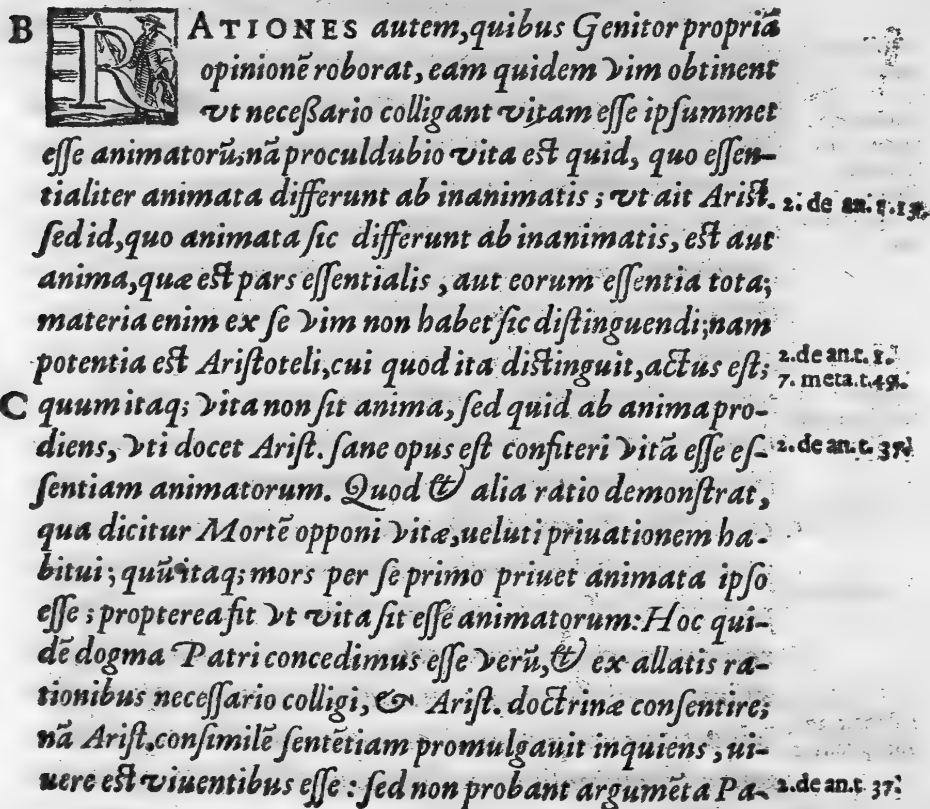 B RATIONES autem, quibus Genitor propriā
opinionē roborat, eam quidem vim obtinent
vt neceßario colligant vitam esse ipsummet
esse animatorū; nā proculdubio vita est quid, quo essen-
tialiter animata differunt ab inanimatis; vt ait Arist. 2. de an. t.
sed id, quo animata sic differunt ab inanimatis, est aut
anima, quæ est pars essentialis, aut eorum essentia tota;
materia enim ex se vim non habet sic distinguendi; nam
potentia est Aristoteli, cui quod ita distinguit, actus est; 2. de an. t. 1.
7. meta. t. 49.
C quum itaq; vita non sit anima, sed quid ab anima pro-
diens, vti docet Arist. sane opus est confiteri vitā esse es- 2. de an. t. 37.
sentiam animatorum. Quod & alia ratio demonstrat,
qua dicitur Mortē opponi vitæ, ueluti priuationem ha-
bitui; quū itaq; mors per se primo priuet animata ipso
esse; propterea fit vt vita sit esse animatorum: Hoc qui-
dē dogma Patri concedimus esse verū, & ex allatis ra-
tionibus necessario colligi, & Arist. doctrinæ consentire;
nā Arist. consimilē sentētiam promulgauit inquiens, ui-
uere est viuentibus esse: sed non probant argumēta Pa- 2. de an. t. 37.